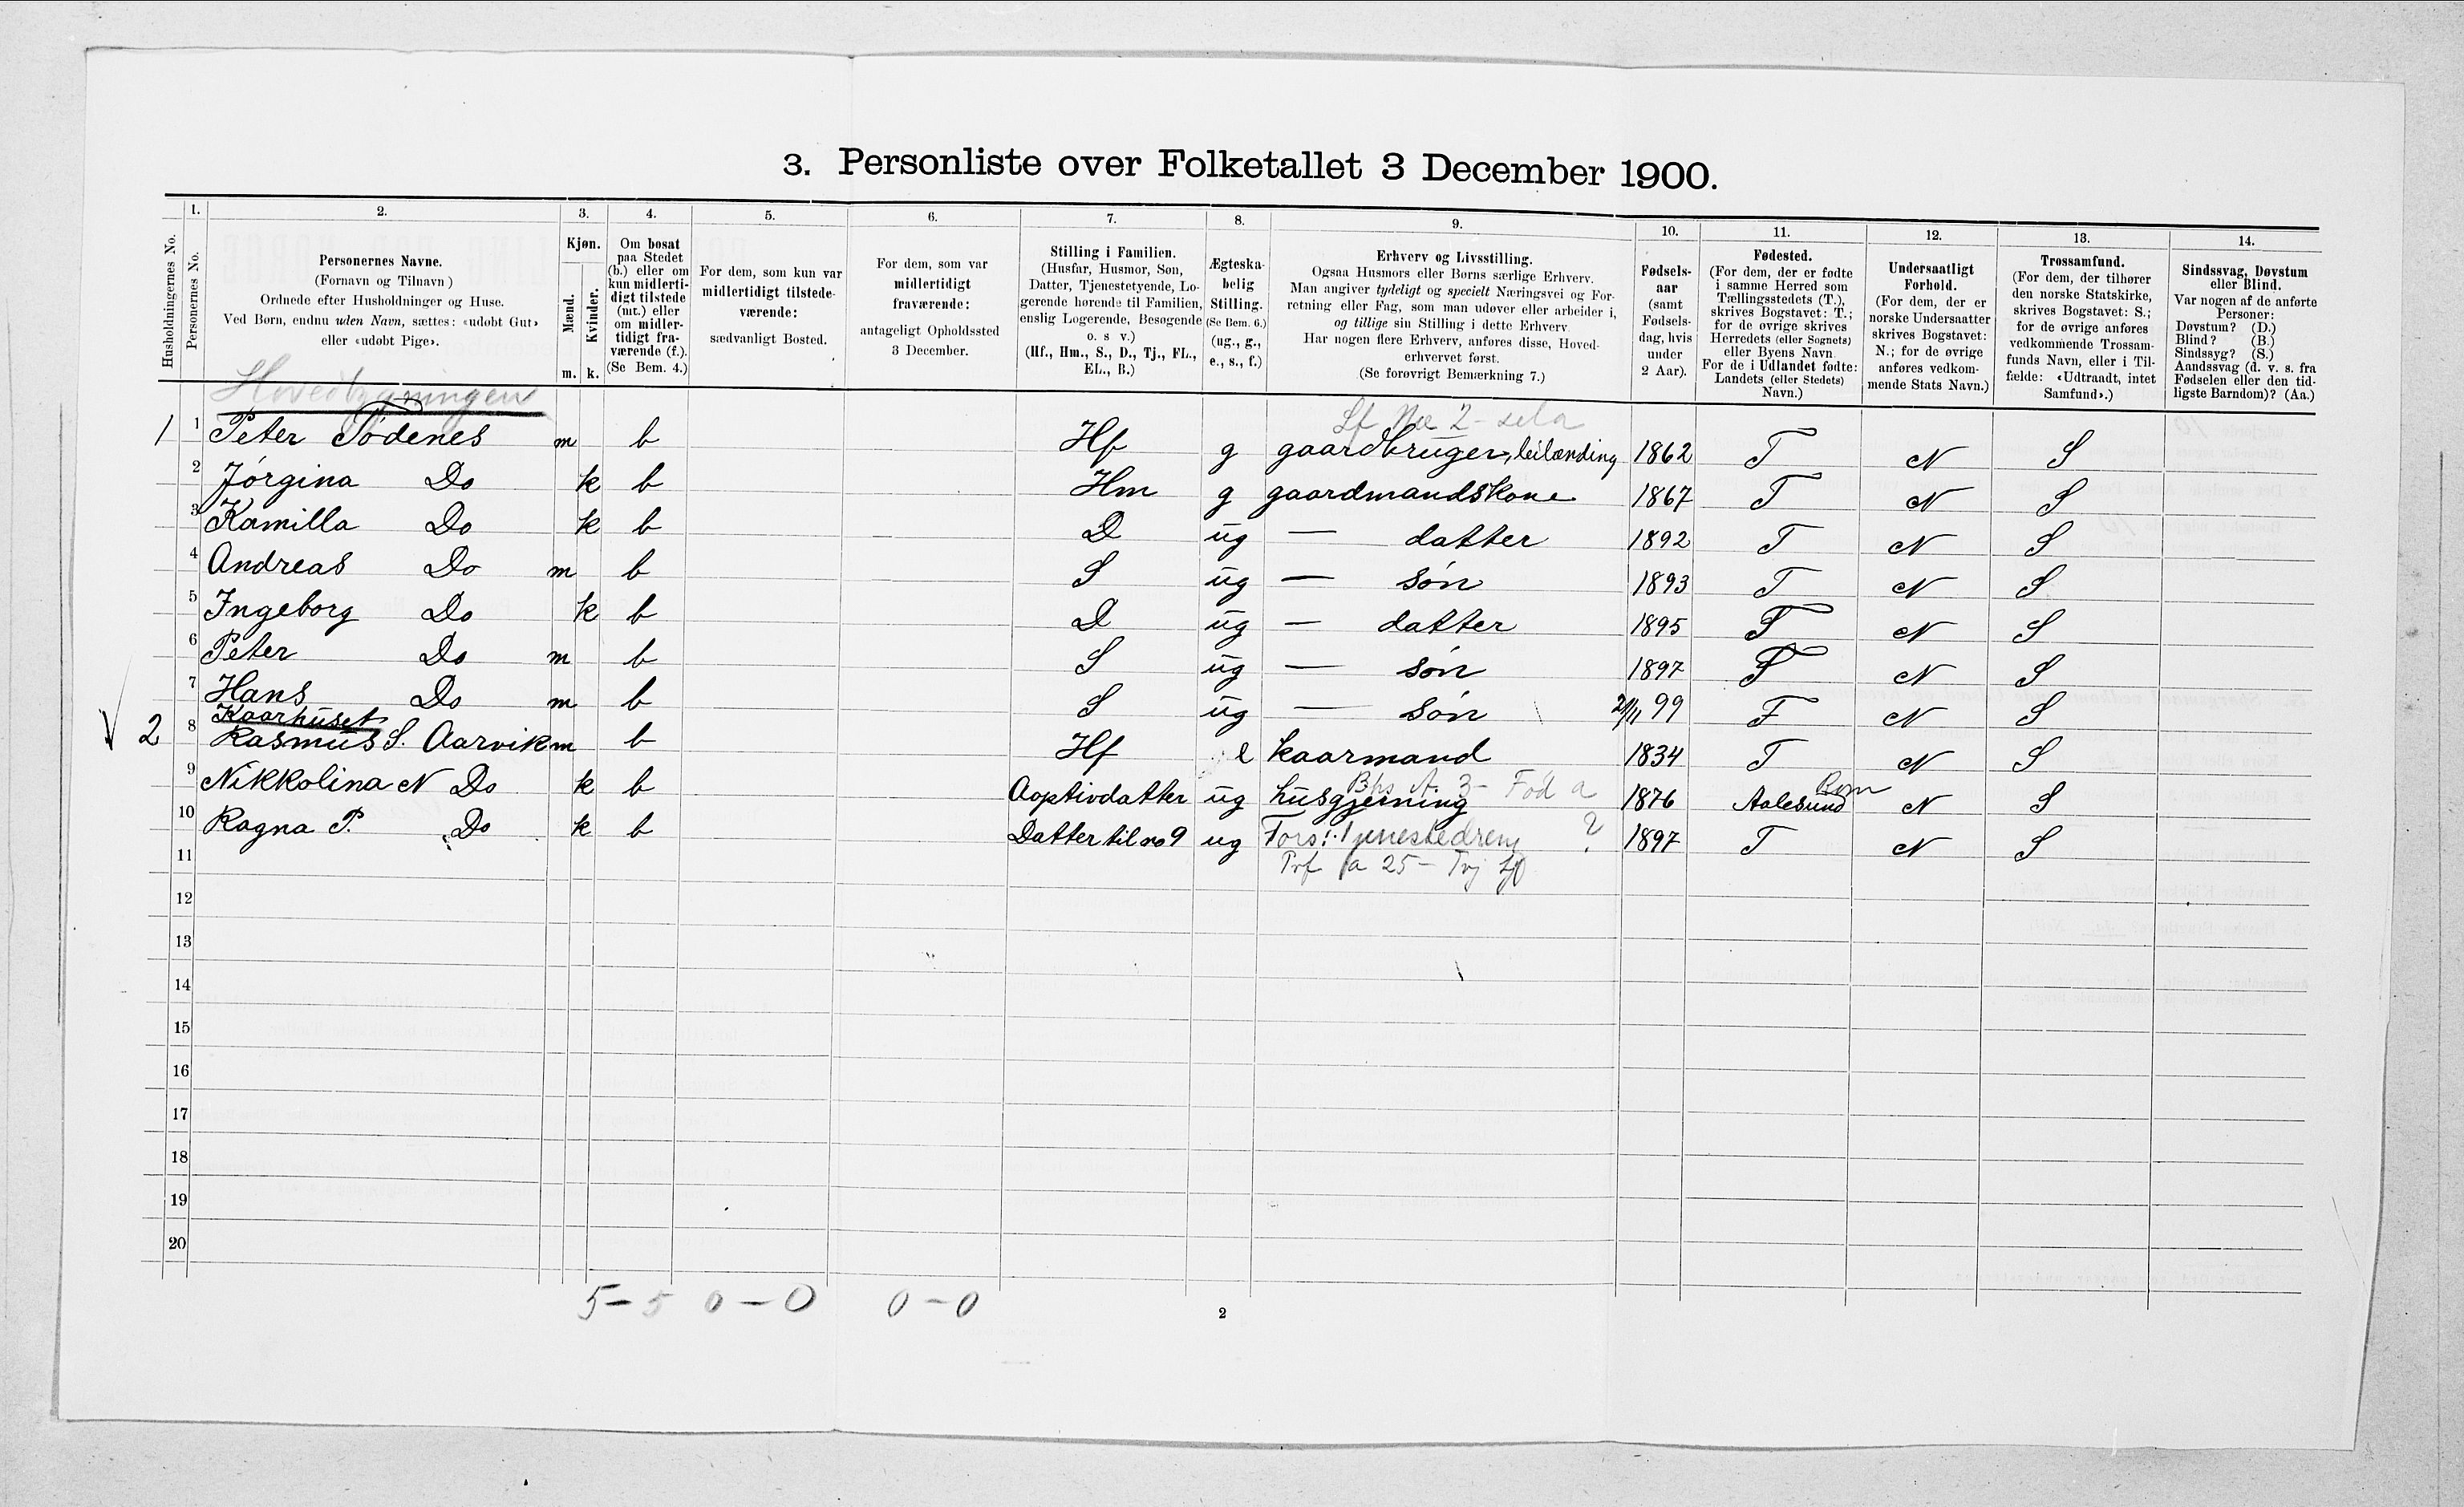 3. Personliste over Folketallet 3 December 1900.
Husholdningernes No.
1. Personernes No.
2. Personernes Navne.
(Fornavn og Tilnavn)
Ordnede efter Husholdninger og Huse.
Ved Børn, endnu uden Navn, sættes: «udøbt Gut»
eller «udøbt Pige».
3. Kjøn.
Mænd. Kvinder.
m. k.
4. Om bosat
paa Stedet
(b.) eller om
kun midlerti-
digt tilstede
(mt.) eller
om midler-
tidigt fra-
værende (f.).
(Se Bem. 4.)
5. For dem, som kun var
midlertidigt tilstede-
værende:
sædvanligt Bosted.
6. For dem, som var
midlertidigt
fraværende:
antageligt Opholdssted
3 December.
7. Stilling i Familien.
(Husfar, Husmor, Søn,
Datter, Tjenestetyende, Lo-
gerende hørende til Familien,
enslig Logerende, Besøgende
o. s v.)
(Hf., Hm., S., D., Tj., FL.,
EL., B.)
8. Ægteska-
belig
Stilling.
(Se Bem. 6.)
(ug., g.,
e., s., f.)
9. Erhverv og Livsstilling.
Ogsaa Husmors eller Børns særlige Erhverv.
Man angiver tydeligt og specielt Næringsvei og For-
retning eller Fag, som man udøver eller arbeider i,
og tillige sin Stilling i dette Erhverv.
Har nogen flere Erhverv, anføres disse, Hoved-
erhvervet først.
(Se forøvrigt Bemærkning 7.)
10. Fødsels-
aar
(samt
Fødsels-
dag, hvis
under
2 Aar).
11. Fødested.
(For dem, der er fødte
i samme Herred som
Tællingsstedets (T.),
skrives Bogstavet: T.;
for de øvrige skrives
Herredets (eller Sognets)
eller Byens Navn.
For de i Udlandet fødte:
Landets (eller Stedets)
Navn.)
12. Undersaatligt
Forhold.
(For dem, der er
norske Undersaatter
skrives Bogstavet:
N.; for de øvrige
anføres vedkom-
mende Stats Navn.)
13. Trossamfund.
(For dem, der tilhører
den norske Statskirke,
skrives Bogstavet: S.;
for de øvrige anføres
vedkommende Trossam-
funds Navn, eller i Til-
fælde: «Udtraadt, intet
Samfund».)
14. Sindssvag, Døvstum
eller Blind.
Var nogen af de anførte
Personer:
Døvstum? (D.)
Blind? (B.)
Sindssyg? (S.)
Aandssvag (d. v. s. fra
Fødselen eller den tid-
ligste Barndom)? (Aa.)
Hovedbygningen
1 1 Peter Tødenes m b Hf g gaardbruger, leilænding 1862 T N S
2 Jørgina Do k b Hm g gaardmandskone 1867 T N S
3 Kamilla Do k b D ug — datter 1892 T N S
4 Andreas Do m b S ug — søn 1893 T N S
5 Ingeborg Do k b D ug — datter 1895 T N S
6 Peter Do m b S ug — søn 1897 T N S
7 Hans Do m b S ug — søn 99 T N S
Kaarhuset
2 8 Rasmus S. Aarvik m b Hf e kaarmand 1834 T N S
9 Nikkolina N Do k b Aoptivdatter ug husgjerning 1876 Aalesund N S
10 Ragna P. Do k b Datter til no 9 ug 1897 T N S
11
12
13
14
15
16
17
18
19
20
5 – 5 0 – 0 0 – 0
2